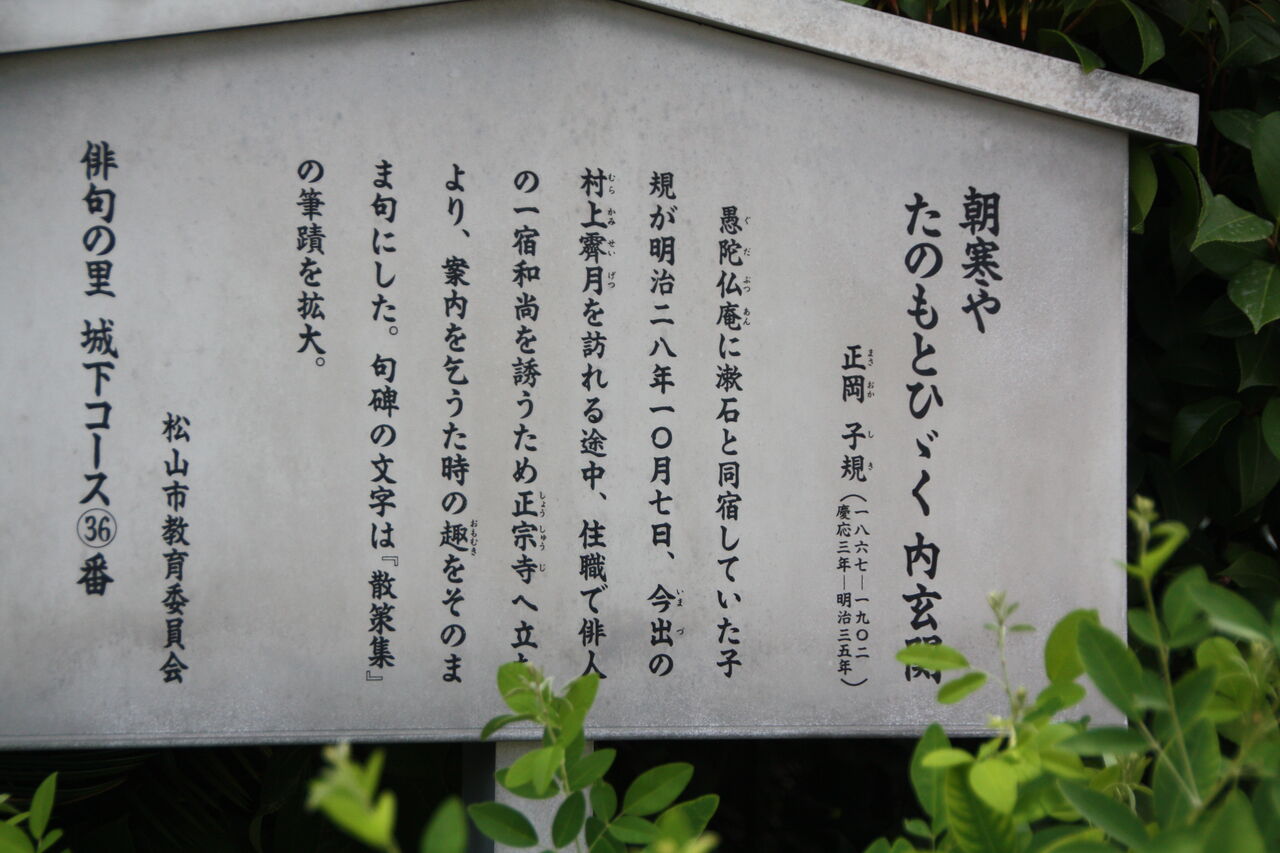 朝寒や
たのもとひゞく 内玄関
正岡 子規(一八六七―一九〇二
慶応三年―明治三五年)
愚陀仏庵に漱石と同宿していた子
規が明治二八年一〇月七日、今出の
村上霽月を訪れる途中、住職で俳人
の一宿和尚を誘うため正宗寺へ立ち
より、案内を乞うた時の趣をそのま
ま句にした。句碑の文字は『散策集』
の筆蹟を拡大。
松山市教育委員会
俳句の里 城下コース㊱番